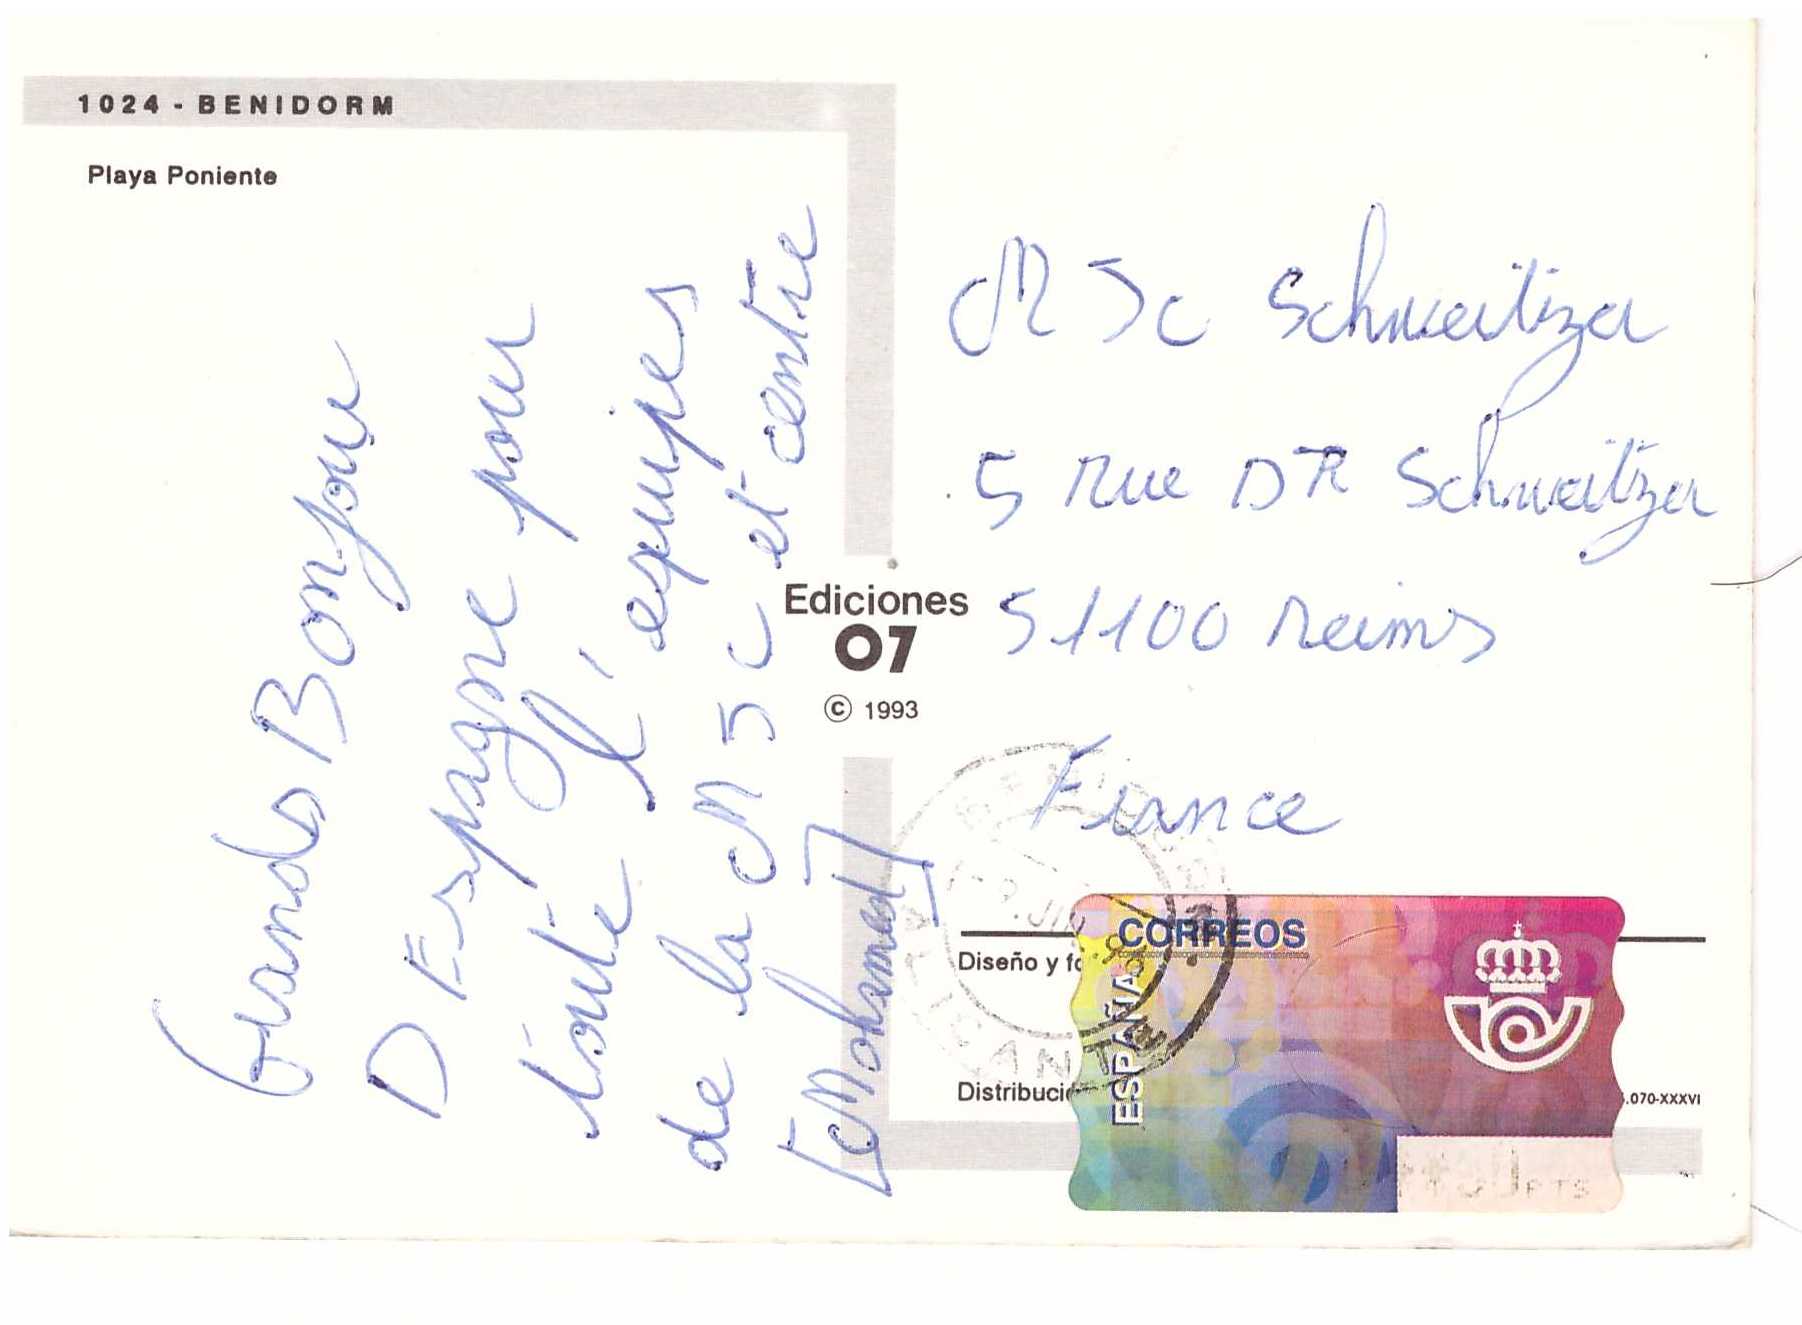 1024 - BENIDORM
Playa Poniente
Grands Bonjour
D Espagne pour
toute l'equipes
de la MJC et centre
[Mohamed]
Ediciones
07
© 1993
MJC Schweitzer
5 Rue DR Schweitzer
51100 Reims
France
CORREOS
ESPAÑA
Diseño y fo
Distribució
.070-XXXVI
PTS
ALICANTE